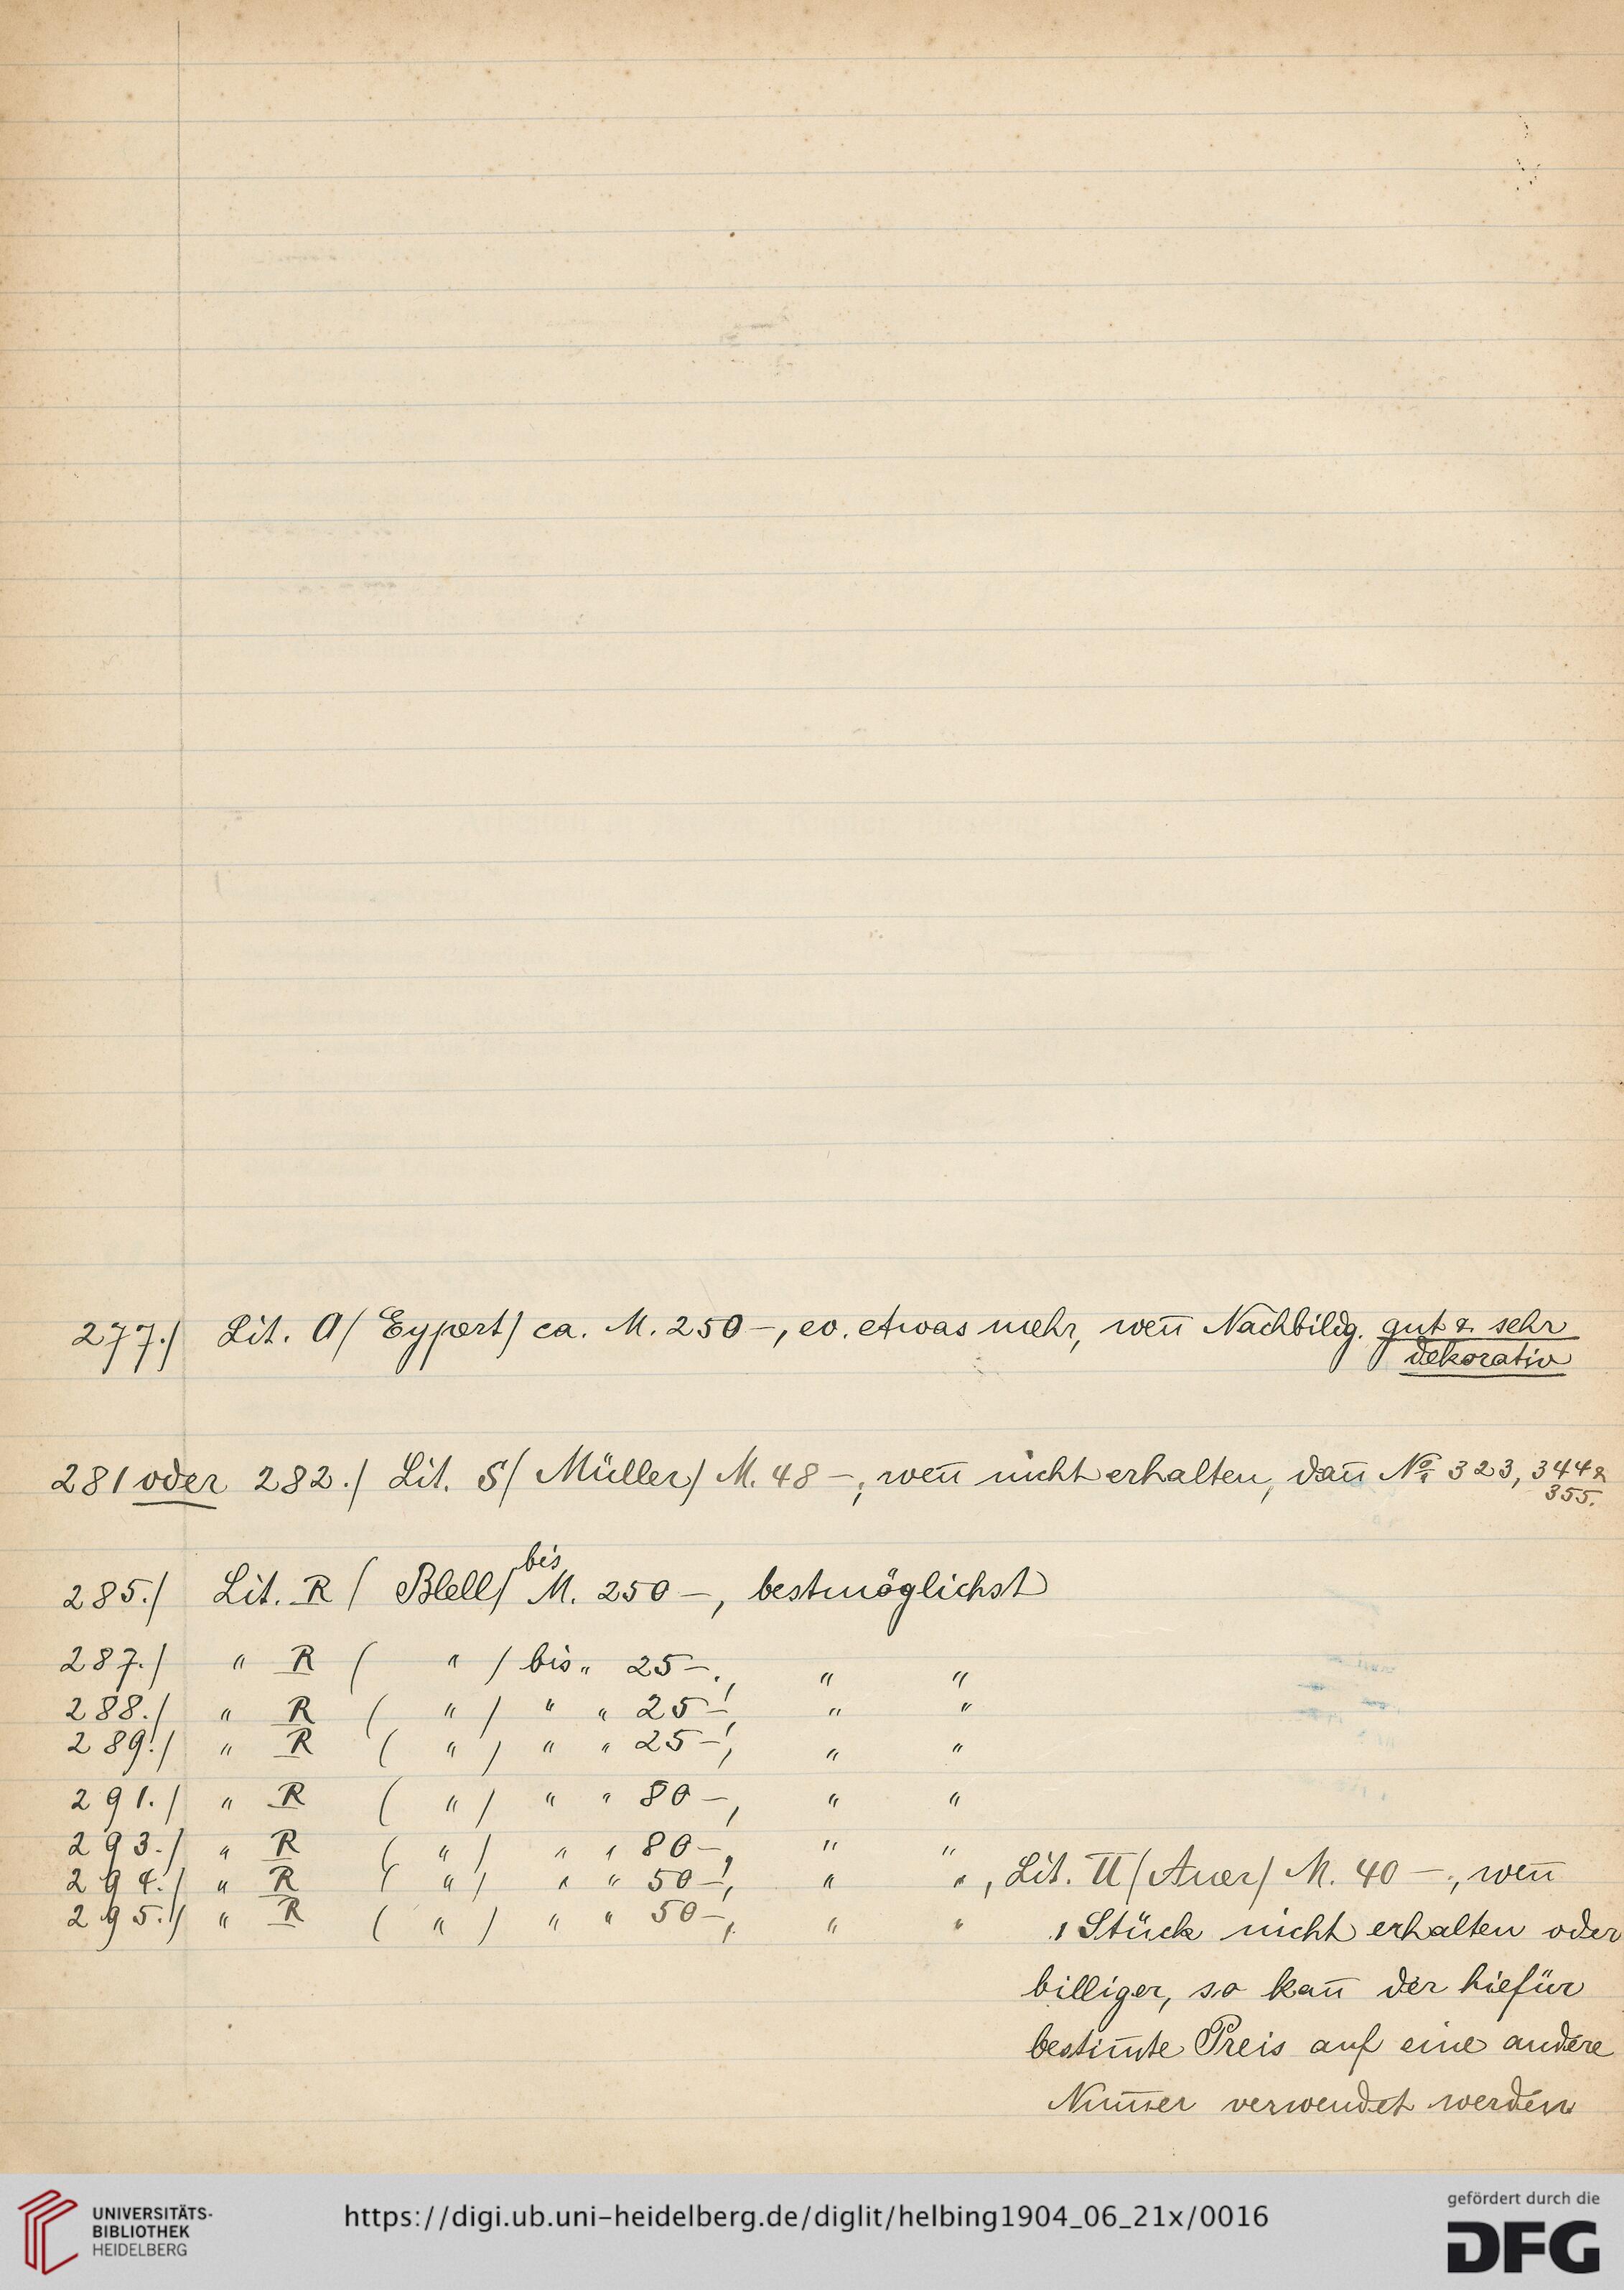 277./ Lit. A / Eypert / ca. M. 250 –, ev. etwas mehr, weñ Nachbildg. gut & sehr
dekorativ
281 oder 282./ Lit. S / Müller / M. 48 –, weñ nicht erhalten, dañ No. 323, 344 &
355.
285./ Lit. R / Blell / bis M. 250 –, bestmöglichst
287./ " R ( " / bis " 25 –, " "
288./ " R ( " / " " 25 –, " "
289./ " R ( " / " " 25 –, " "
291./ " R ( " / " " 80 –, " "
293./ " R ( " / " " 80 –, " "
294./ " R ( " / " " 50 –, " ", Lit. II / Auer / M. 40 –, weñ
295./ " R ( " / " " 50 –, " " 1 Stück nicht erhalten oder
billiger, so kañ der hiefür
bestim̄te Preis auf eine andere
Num̄er verwendet werden
UNIVERSITÄTS-
BIBLIOTHEK
HEIDELBERG
https://digi.ub.uni-heidelberg.de/diglit/helbing1904_06_21x/0016
gefördert durch die
DFG